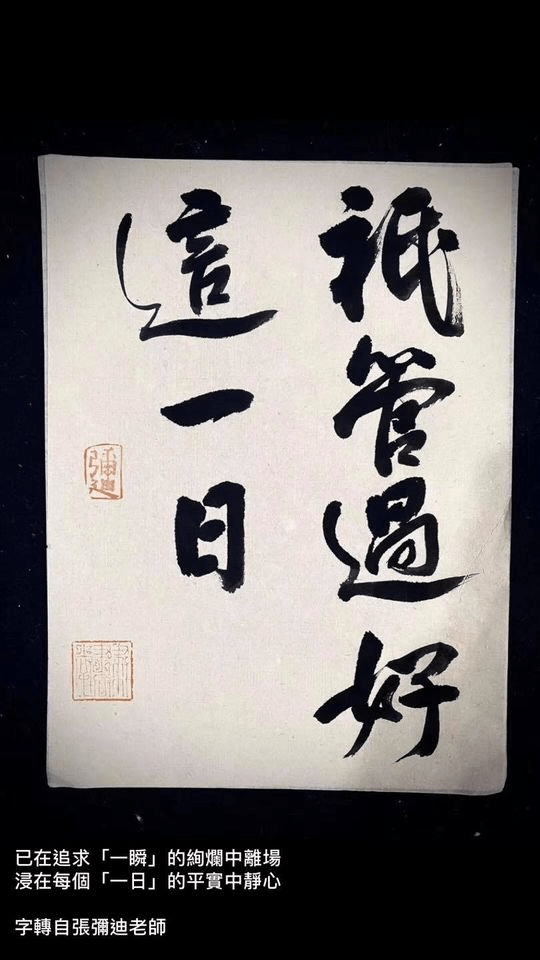 祇管過好
這一日
彌迪
已在追求「一瞬」的絢爛中離場
浸在每個「一日」的平實中靜心
字轉自張彌迪老師